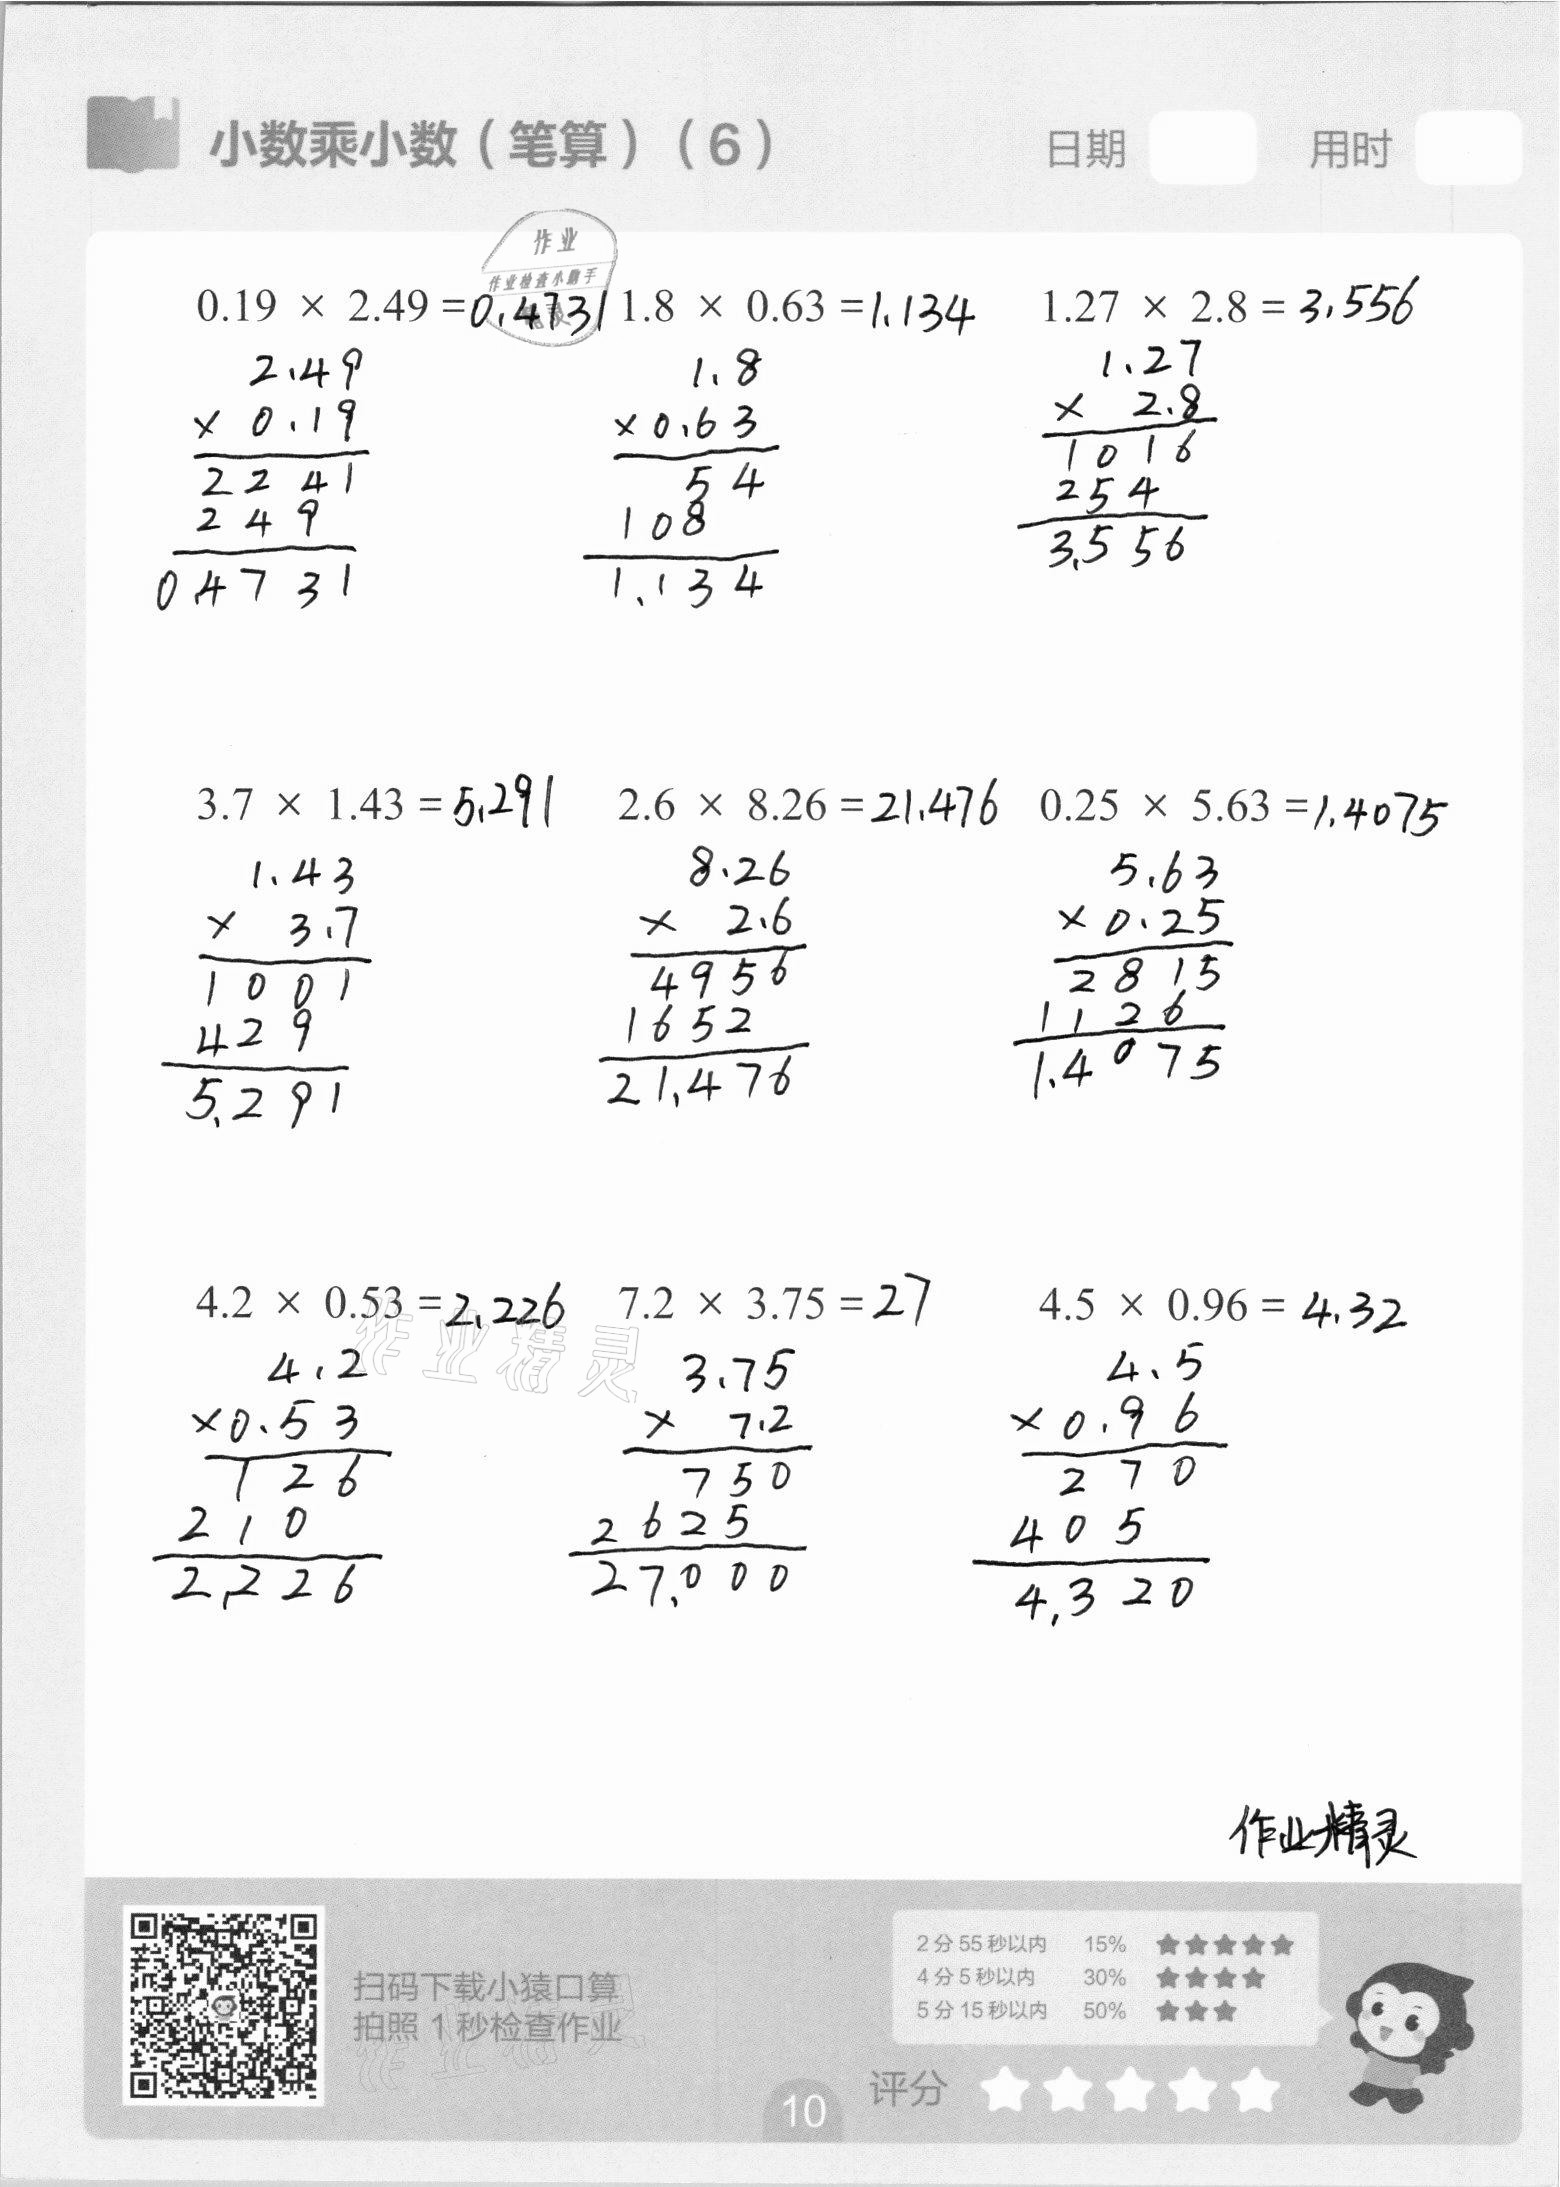 小数乘小数（笔算）（6） 日期 用时
作业
作业检查小助手
精灵
0.19 × 2.49 = 0.4731 1.8 × 0.63 = 1.134 1.27 × 2.8 = 3.556
2.49 1.8 1.27
× 0.19 × 0.63 × 2.8
2241 54 1016
249 108 254
0.4731 1.134 3.556
3.7 × 1.43 = 5.291 2.6 × 8.26 = 21.476 0.25 × 5.63 = 1.4075
1.43 8.26 5.63
× 3.7 × 2.6 × 0.25
1001 4956 2815
429 1652 1126
5.291 21.476 1.4075
4.2 × 0.53 = 2.226 7.2 × 3.75 = 27 4.5 × 0.96 = 4.32
作业精灵
4.2 3.75 4.5
× 0.53 × 7.2 × 0.96
126 750 270
210 2625 405
2.226 27.000 4.320
作业精灵
扫码下载小猿口算
拍照 1 秒检查作业
作业精灵
2 分 55 秒以内 15% ★★★★★
4 分 5 秒以内 30% ★★★★
5 分 15 秒以内 50% ★★★
评分
10